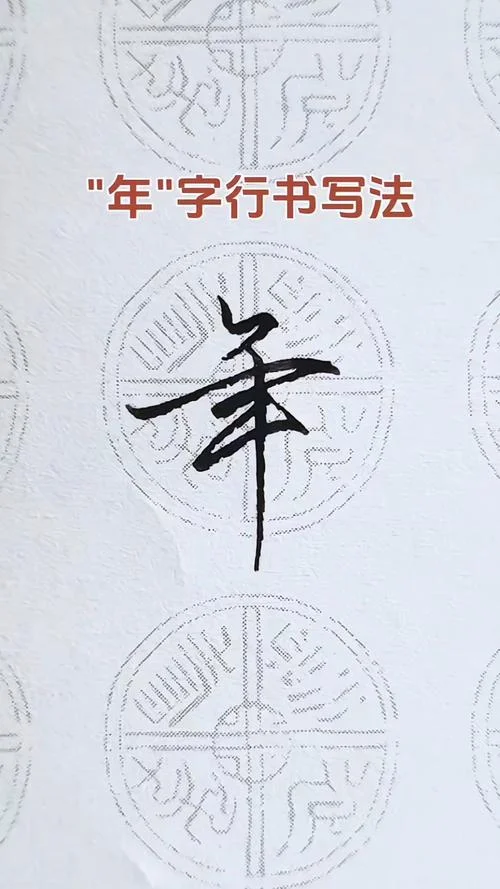 "年"字行书写法
年